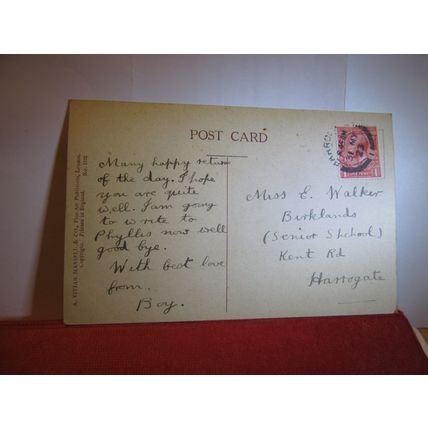 POST CARD
Many happy return
of the day. I hope
you are quite
well. I am going
to write to
Phyllis now well
good bye.
With best love
from.
Boy.
Miss E. Walker
Birklands
(Senior Shchool)
Kent Rd
Harrogate
A. VIVIAN MANSELL & CO., Fine Art Publishers, London.
Copyright. Printed in England.